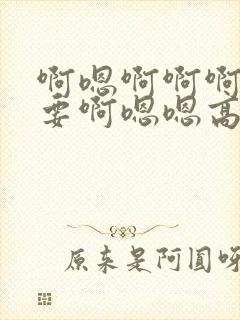 啊嗯啊啊啊
要啊嗯嗯高
原来是阿圆呀